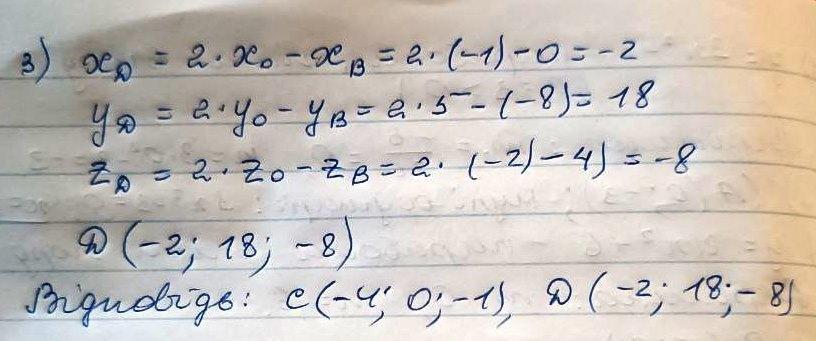 3) x_D = 2·x_0 - x_B = 2·(-1) - 0 = -2
y_D = 2·y_0 - y_B = 2·5 - (-8) = 18
z_D = 2·z_0 - z_B = 2·(-2) - 4) = -8
D (-2; 18; -8)
Відповідь: C(-4; 0; -1), D (-2; 18; -8)